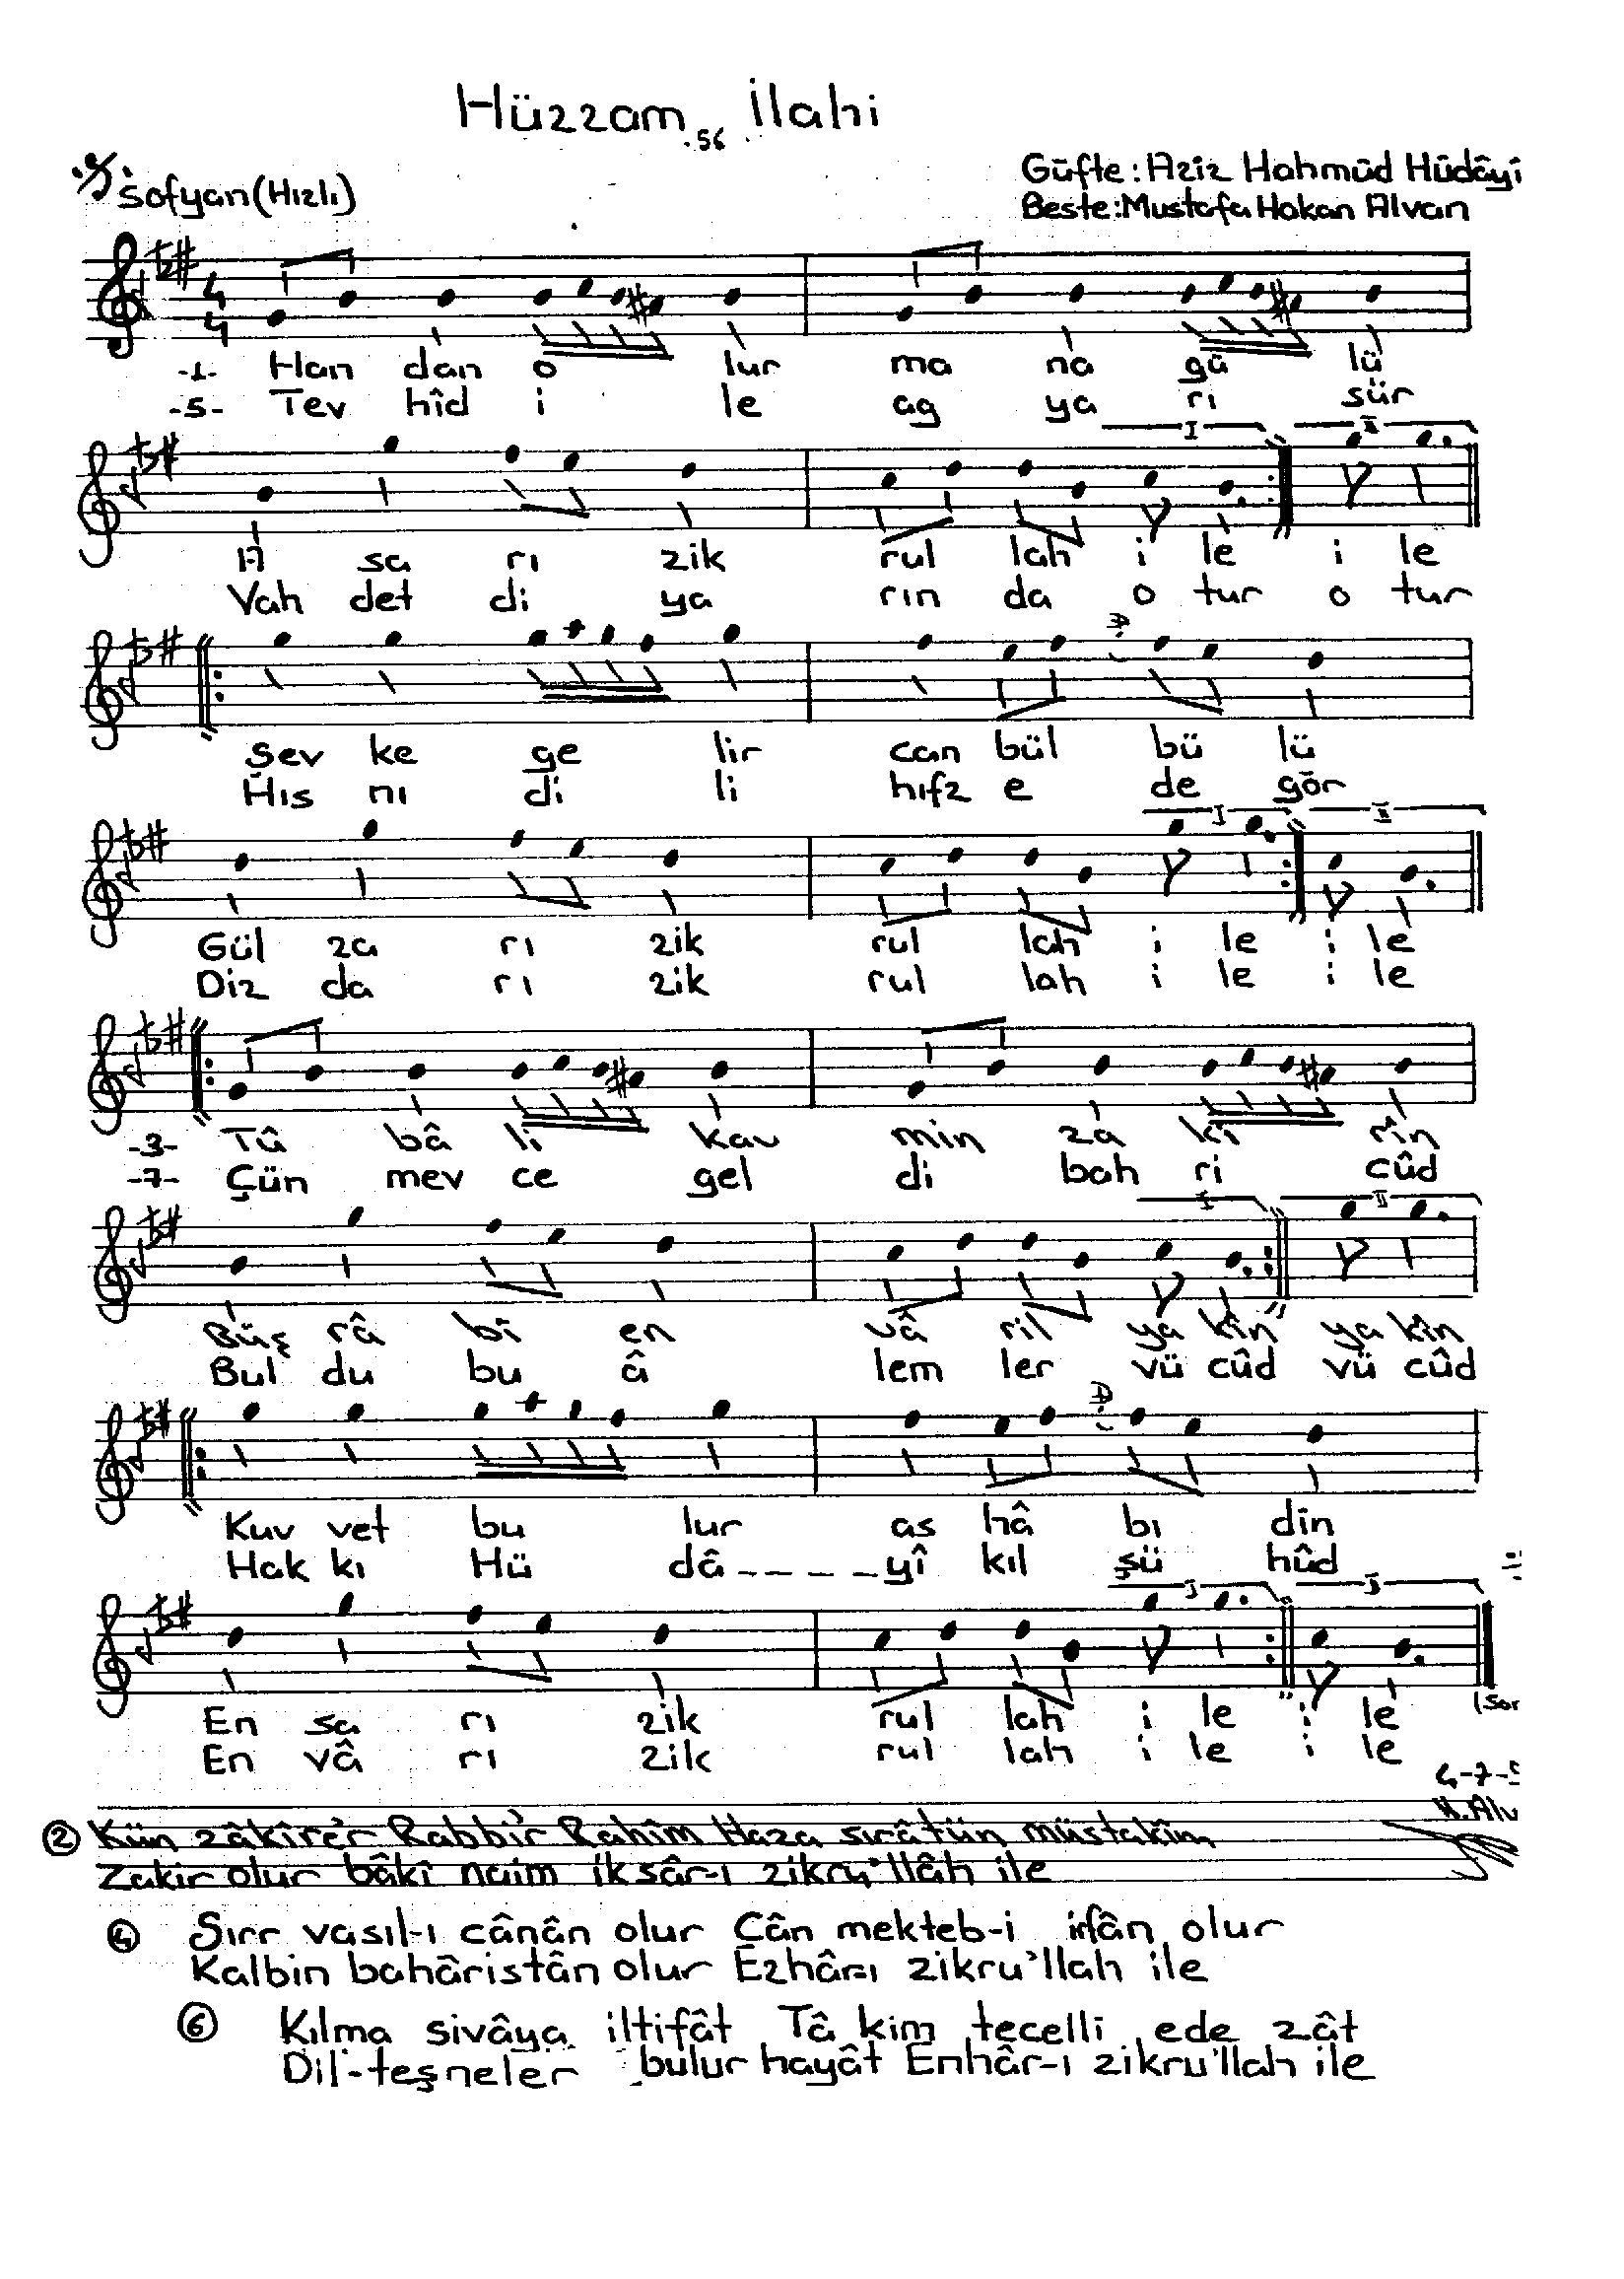 Hüzzam İlahi
56
Sofyan (Hızlı)
Güfte: Aziz Mahmûd Hüdâyî
Beste: Mustafa Hakan Alvan
4
4
-1- Han dan o lur ma na gü lü
-5- Tev hîd i le ag ya ri sür
I II
A sa rı zik rul lah i le i le
Vah det di ya rın da o tur o tur
Şev ke ge lir can bül bü lü
Hıs nı di li hıfz e de gör
I II
Gül za rı zik rul lah i le i le
Diz da rı zik rul lah i le i le
-3- Tû bâ li kav min za ki rîn
-7- Çün mev ce gel di bah ri cûd
I II
Büş râ bi en vâ ril ya kîn ya kîn
Bul du bu â lem ler vü cûd vü cûd
Kuv vet bu lur as hâ bı din
Hak kı Hü dâ _ _ _ _ yî kıl şü hûd
En sa rı zik rul lah i le i le
En vâ rı zik rul lah i le i le
(Son
4-7-
H. Alv
② Kün zâkîre'r Rabbi'r Rahîm Haza sırâtün müstakîm
Zakir olur bâkî naim iksâr-ı zikru'llâh ile
④ Sırr vasıl-ı cânân olur Cân mekteb-i irfân olur
Kalbin bahâristân olur Ezhâr-ı zikru'llah ile
⑥ Kılma sivâya iltifât Tâ kim tecelli ede zât
Dil-teşneler bulur hayât Enhâr-ı zikru'llah ile